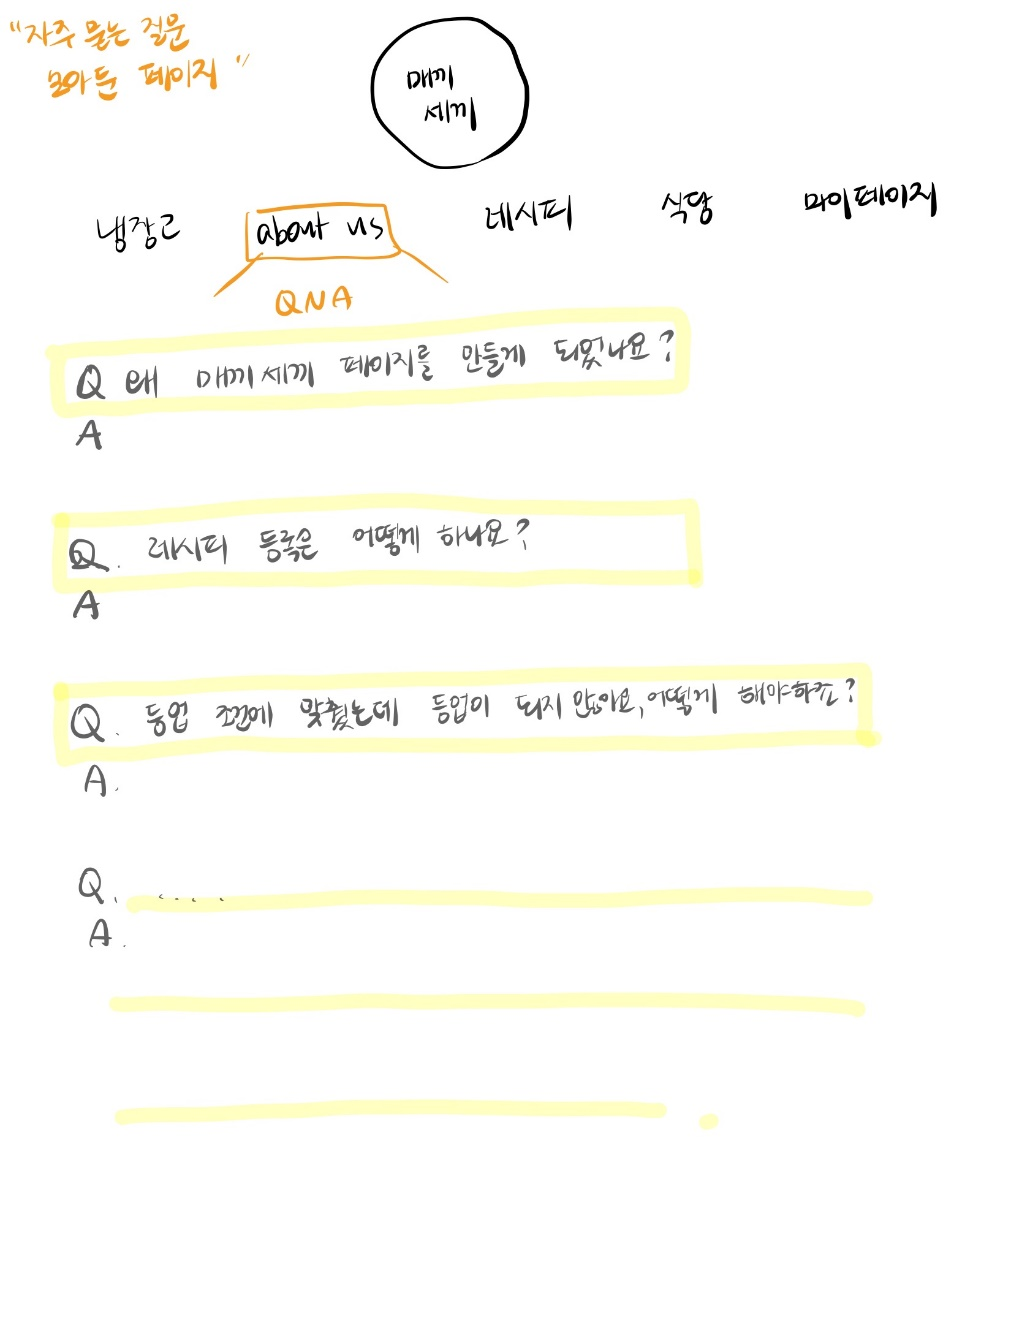 "자주 묻는 질문
모아둔 페이지"
매끼
세끼
냉장고 about us 레시피 식당 마이페이지
QNA
Q 왜 매끼세끼 페이지를 만들게 되었나요?
A
Q. 레시피 등록은 어떻게 하나요?
A
Q. 등업 조건에 맞췄는데 등업이 되지 않아요, 어떻게 해야하죠?
A.
Q. ....
A.